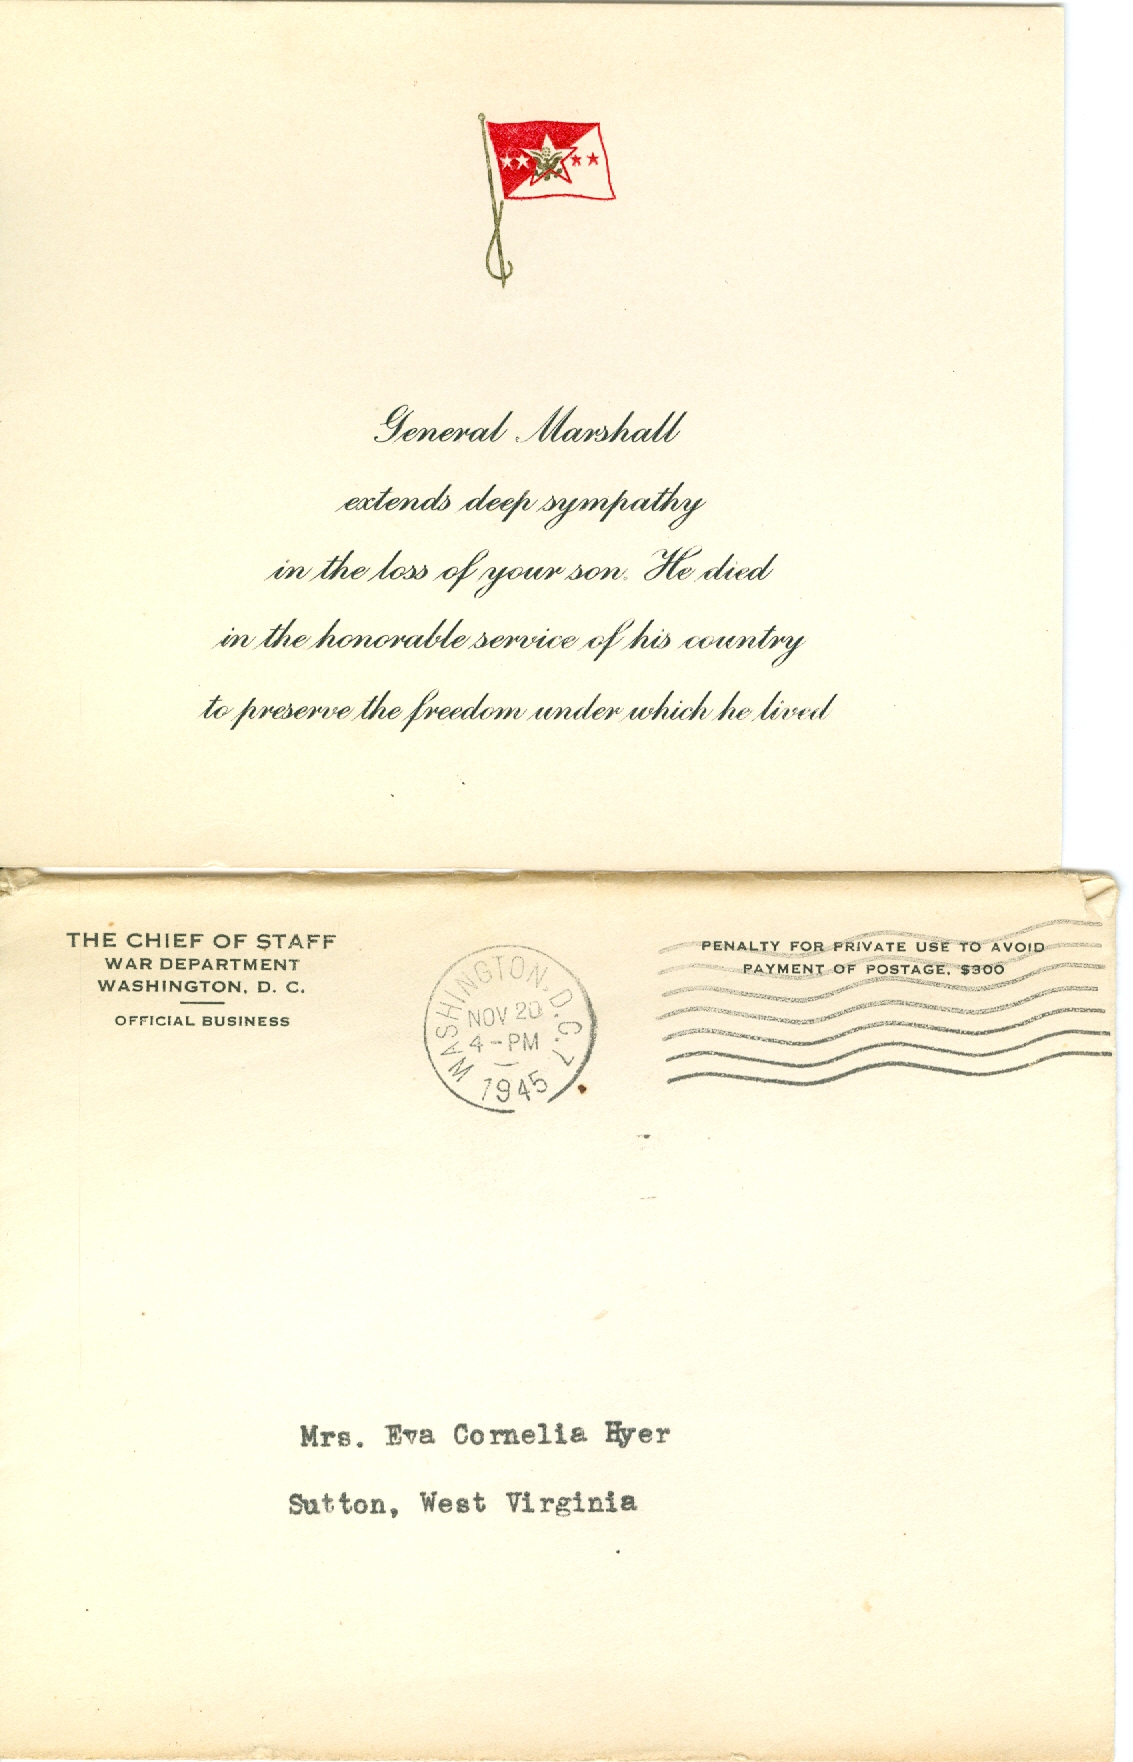 General Marshall
extends deep sympathy
in the loss of your son. He died
in the honorable service of his country
to preserve the freedom under which he lived
THE CHIEF OF STAFF
WAR DEPARTMENT
WASHINGTON, D. C.
OFFICIAL BUSINESS
WASHINGTON, D.C. 7
NOV 20
4-PM
1945
PENALTY FOR PRIVATE USE TO AVOID
PAYMENT OF POSTAGE, $300
Mrs. Eva Cornelia Hyer
Sutton, West Virginia